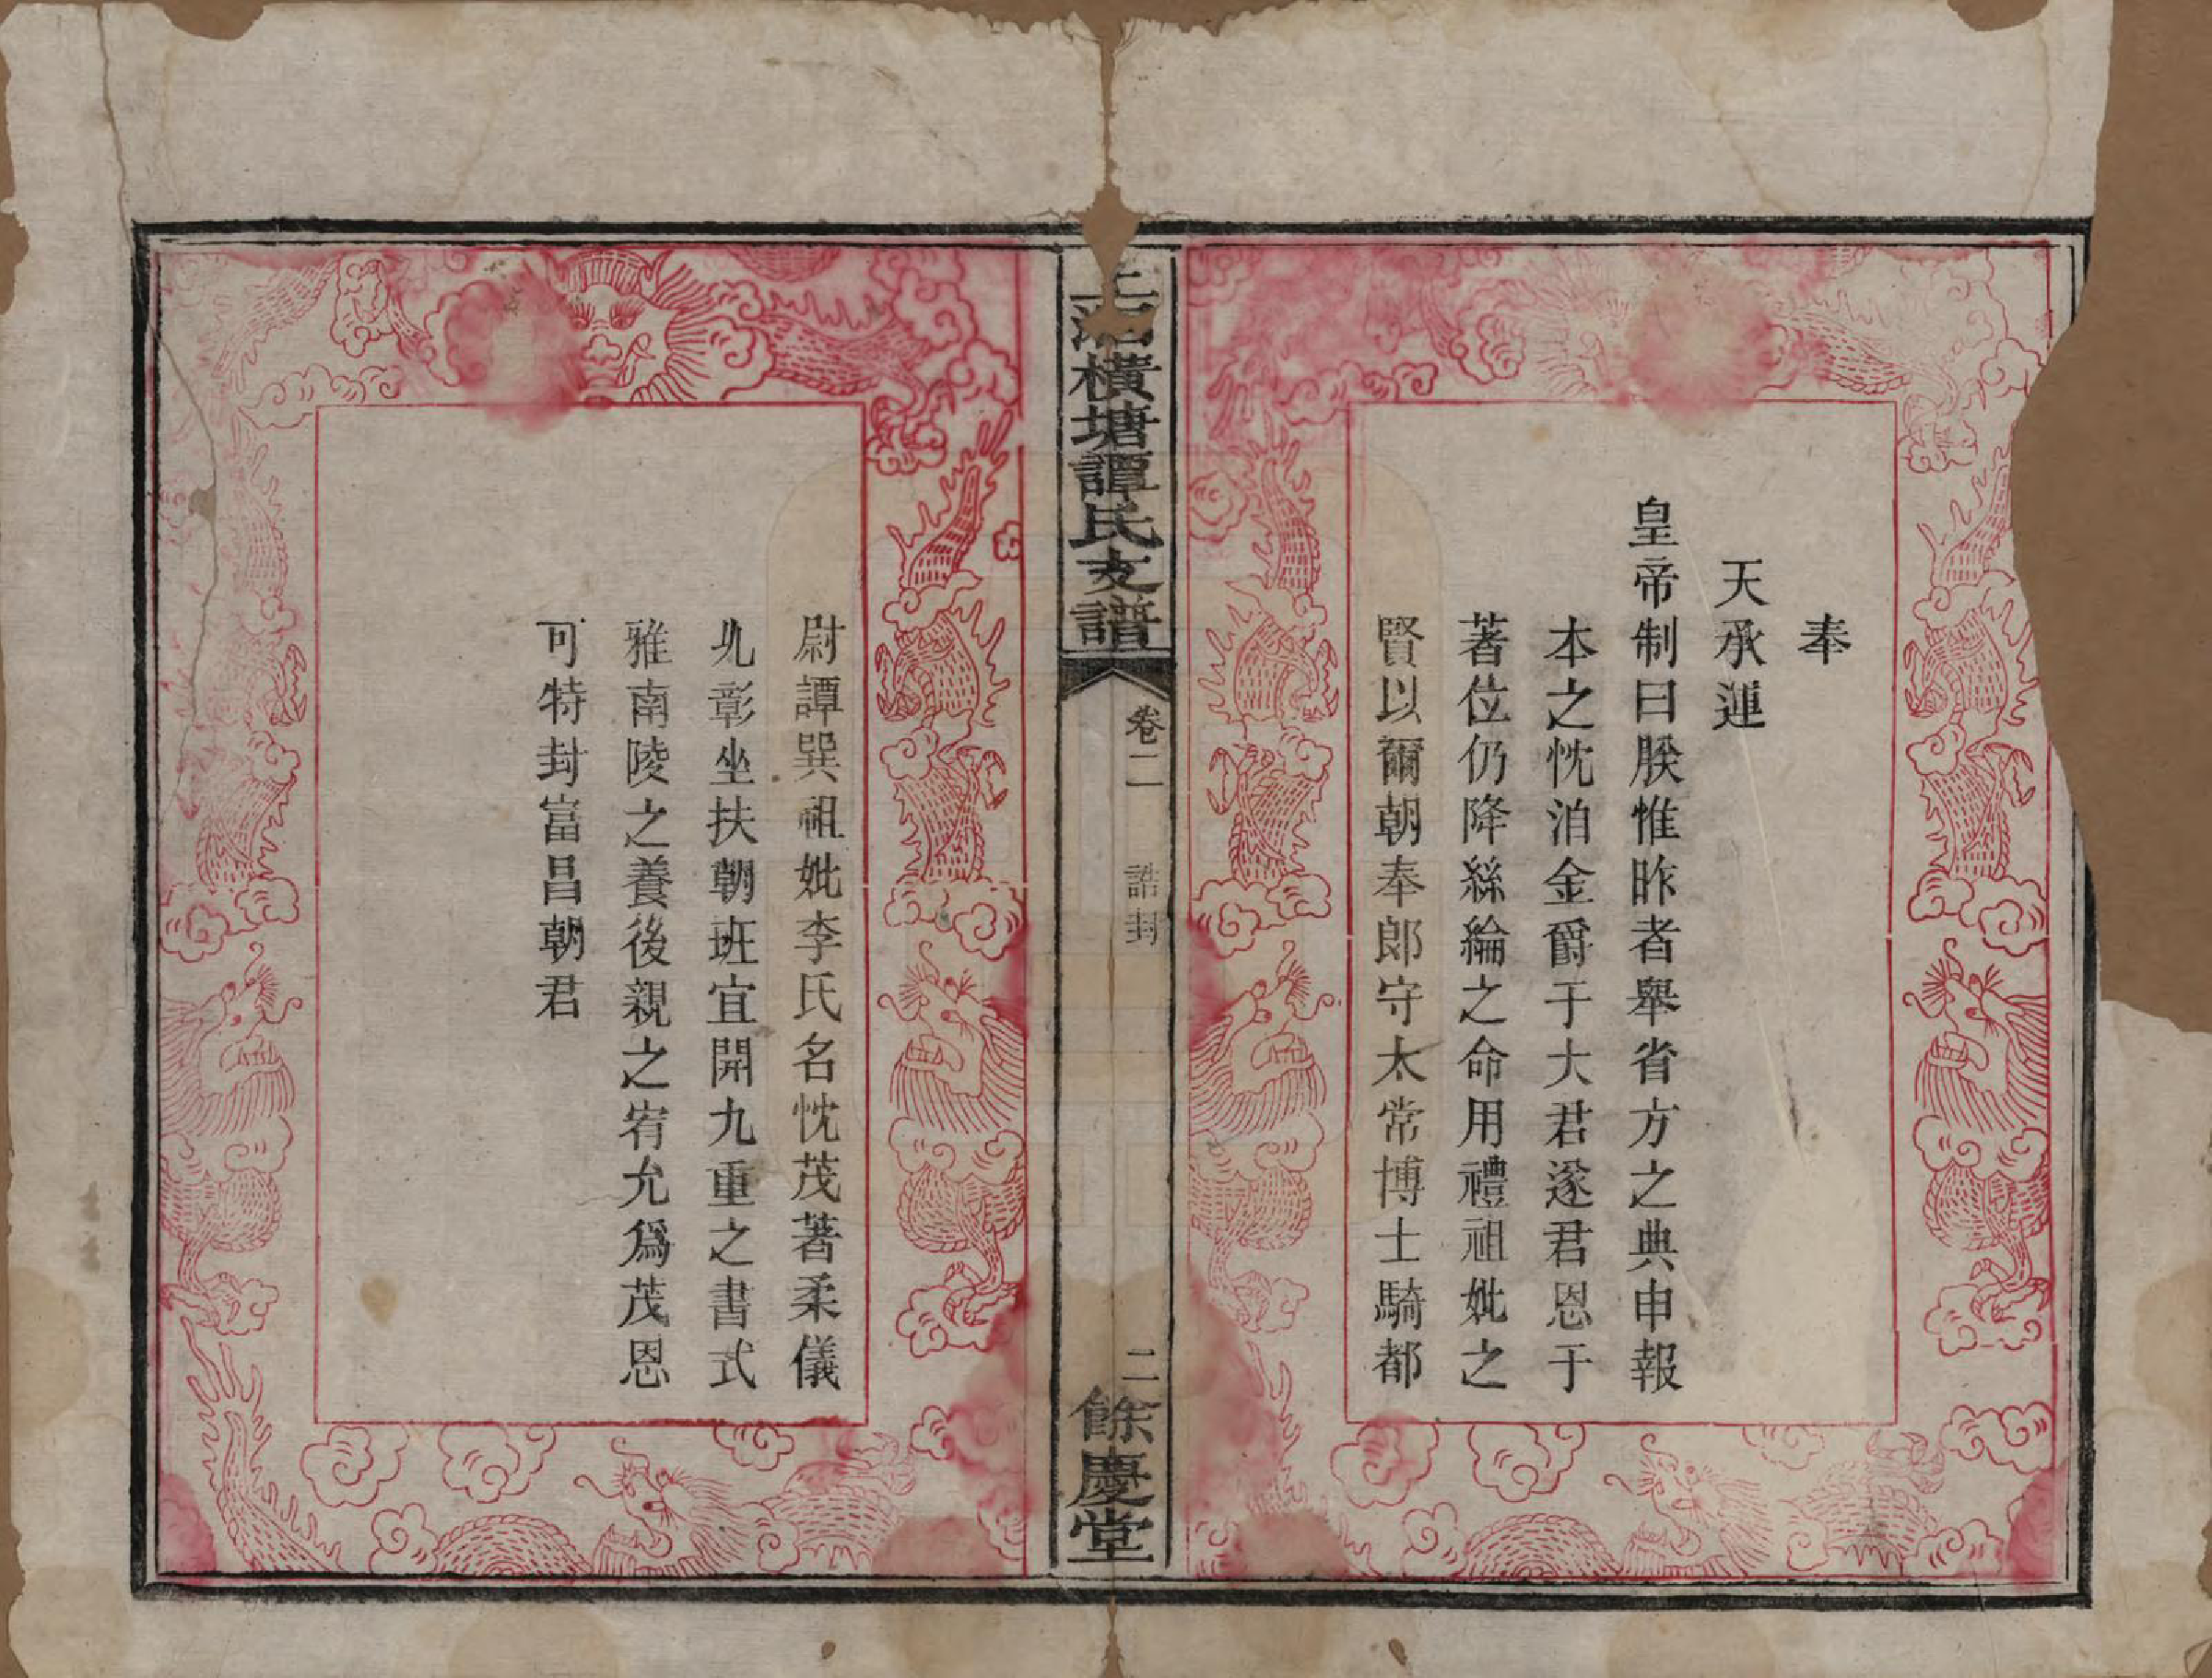 奉
天承運
皇帝制曰朕惟昨者舉省方之典申報
本之忱泊金爵于大君遂君恩于
著位仍降絲綸之命用禮祖妣之
賢以爾朝奉郎守太常博士騎都
上湘橫塘譚氏支譜
卷二 誥封
二
餘慶堂
尉譚巽祖妣李氏名忱茂著柔儀
允彰坐扶朝班宜開九重之書式
雅南陵之養後親之宥允爲茂恩
可特封富昌朝君